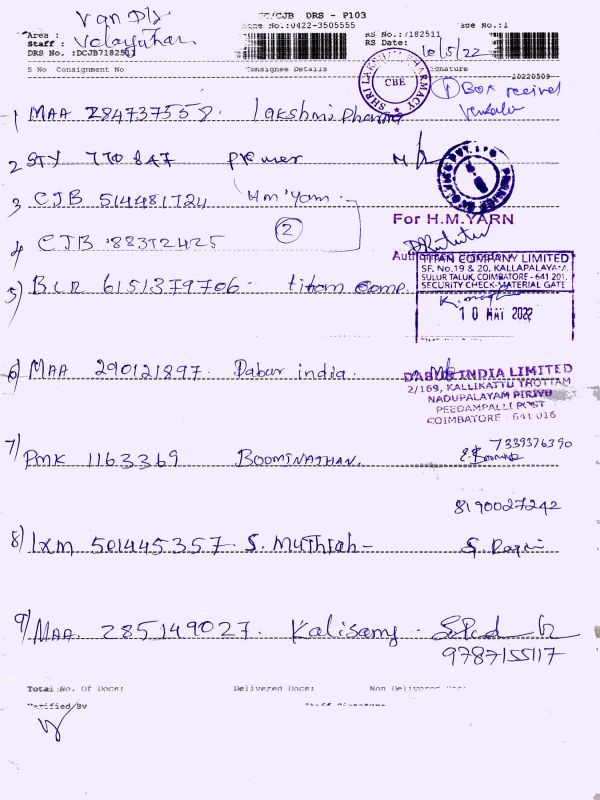 Van DLY
CC/CJB DRS - P103
Area :
Phone No.:0422-3505555
Page No.:1
Staff : Velayuthan.
RS No.:7182511
DRS No. :DCJB7182511
RS Date: 10/5/22
S No Consignment No Consignee Details Signature
20220509
SHRI LAKSHMI PHARMACY
CBE
① Box received
1 MAA 284737558. lakshmi Pharma
2 STY 770847 Premier
3 CJB 514481724 Hm Yarn.
For H.M.YARN
②
4 CJB 88372425
Authorised
TITAN COMPANY LIMITED
SF. No.19 & 20, KALLAPALAYAM,
SULUR TALUK, COIMBATORE - 641 201.
SECURITY CHECK-MATERIAL GATE
5) BLR 6151379706. titan Comp.
10 MAY 2022
6) MAA 290121897. Dabur india.
DABUR INDIA LIMITED
2/169, KALLIKATTU THOTTAM
NADUPALAYAM PIRIVU
PEEDAMPALLI POST
COIMBATORE - 641 016
7339376390
7) PMK 1163369 BOOMINATHAN.
8190027242
8) IXM 501445357. S. Muthiah-
9) MAA. 285149027. Kalisamy.
9787155117
Total No. Of Docs: Delivered Docs: Non Delivered Docs:
Verified By Staff Signature